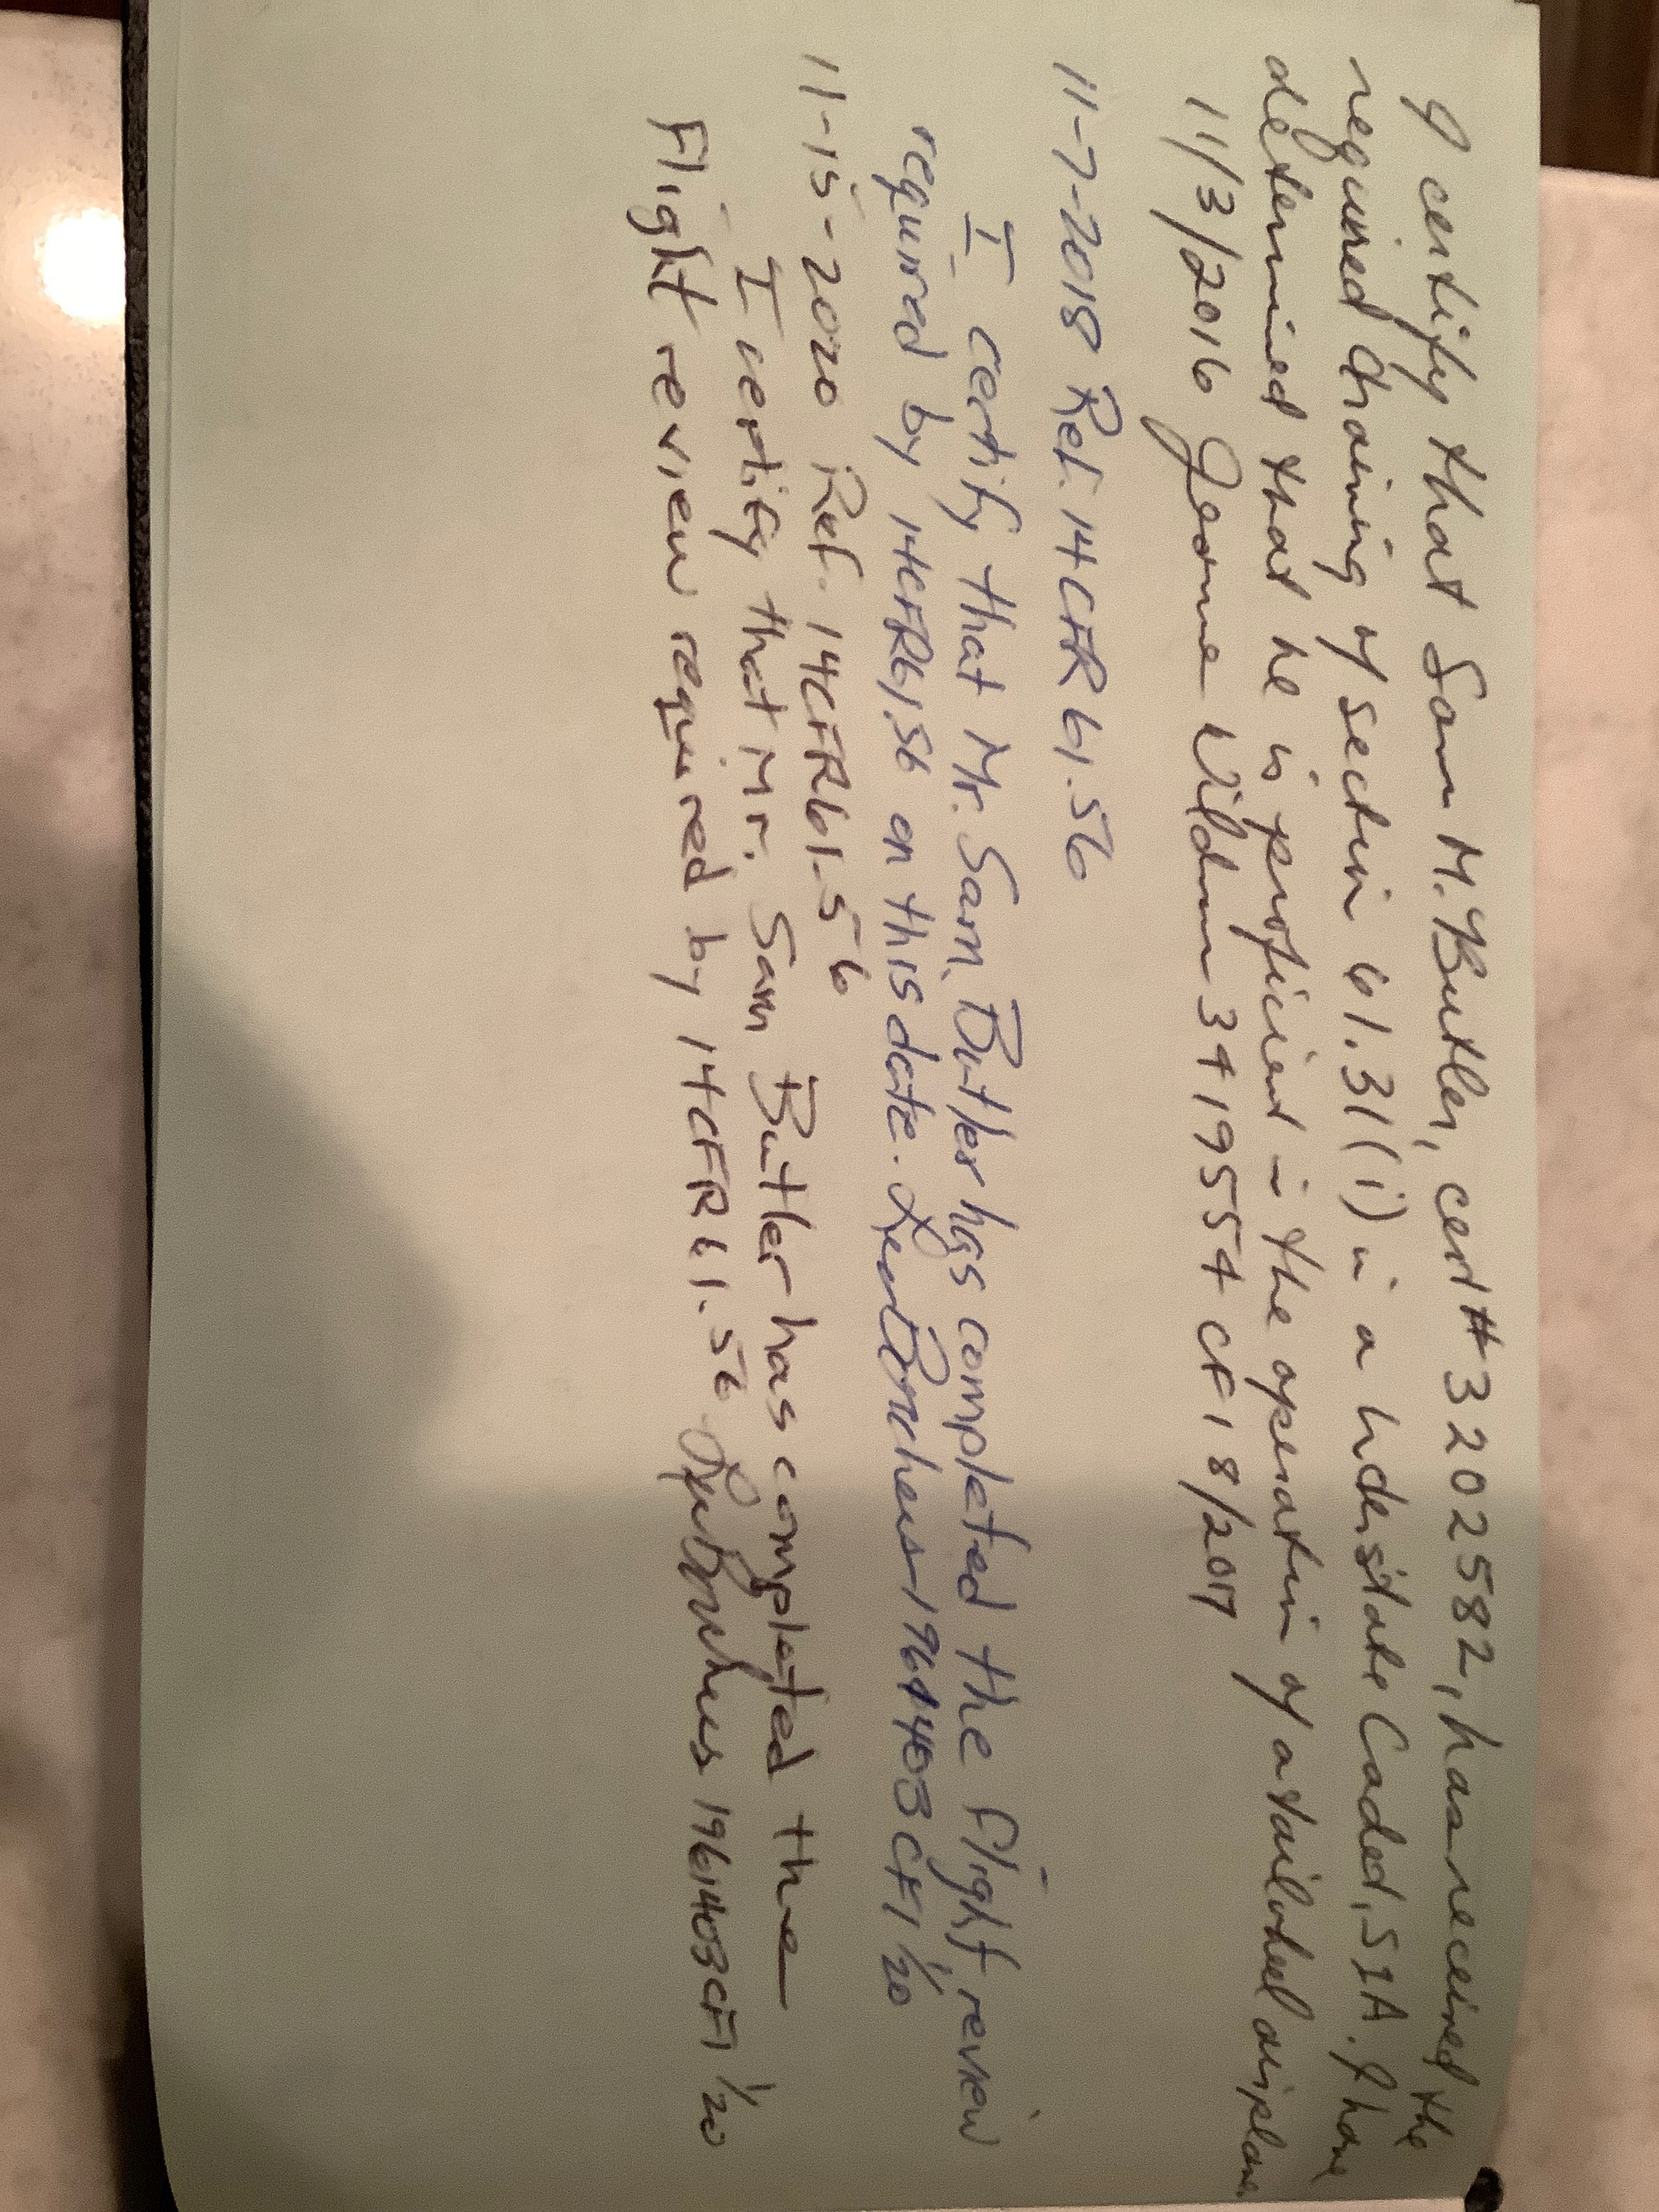 I certify that Sam M. Butler, cert # 3202582, has received the
required training of section 61.31(i) in a Interstate Cadet, S1A. I have
determined that he is proficient in the operation of a tailwheel airplane.
11/3/2016 Jerome 3419554 CFI 8/2017
11-7-2018 Ref. 14CFR 61.56
I certify that Mr. Sam Butler has completed the flight review
required by 14CFR61.56 on this date. 1961403 CFI 1/20
11-15-2020 Ref. 14CFR61.56
I certify that Mr. Sam Butler has completed the
Flight review required by 14CFR 61.56 1961403CFI 1/20